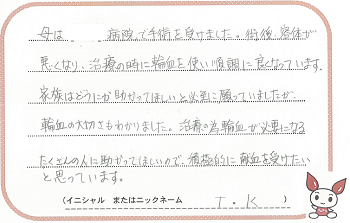 母は 病院で手術を受けました。術後、容体が
悪くなり、治療の時に輸血を使い順調に良くなっています。
家族はどうにか助かってほしいと必死に願っていましたが、
輸血の大切さもわかりました。治療の為輸血が必要になる
たくさんの人に助かってほしいので、積極的に献血を受けたい
と思っています。
(イニシャル またはニックネーム T.K )